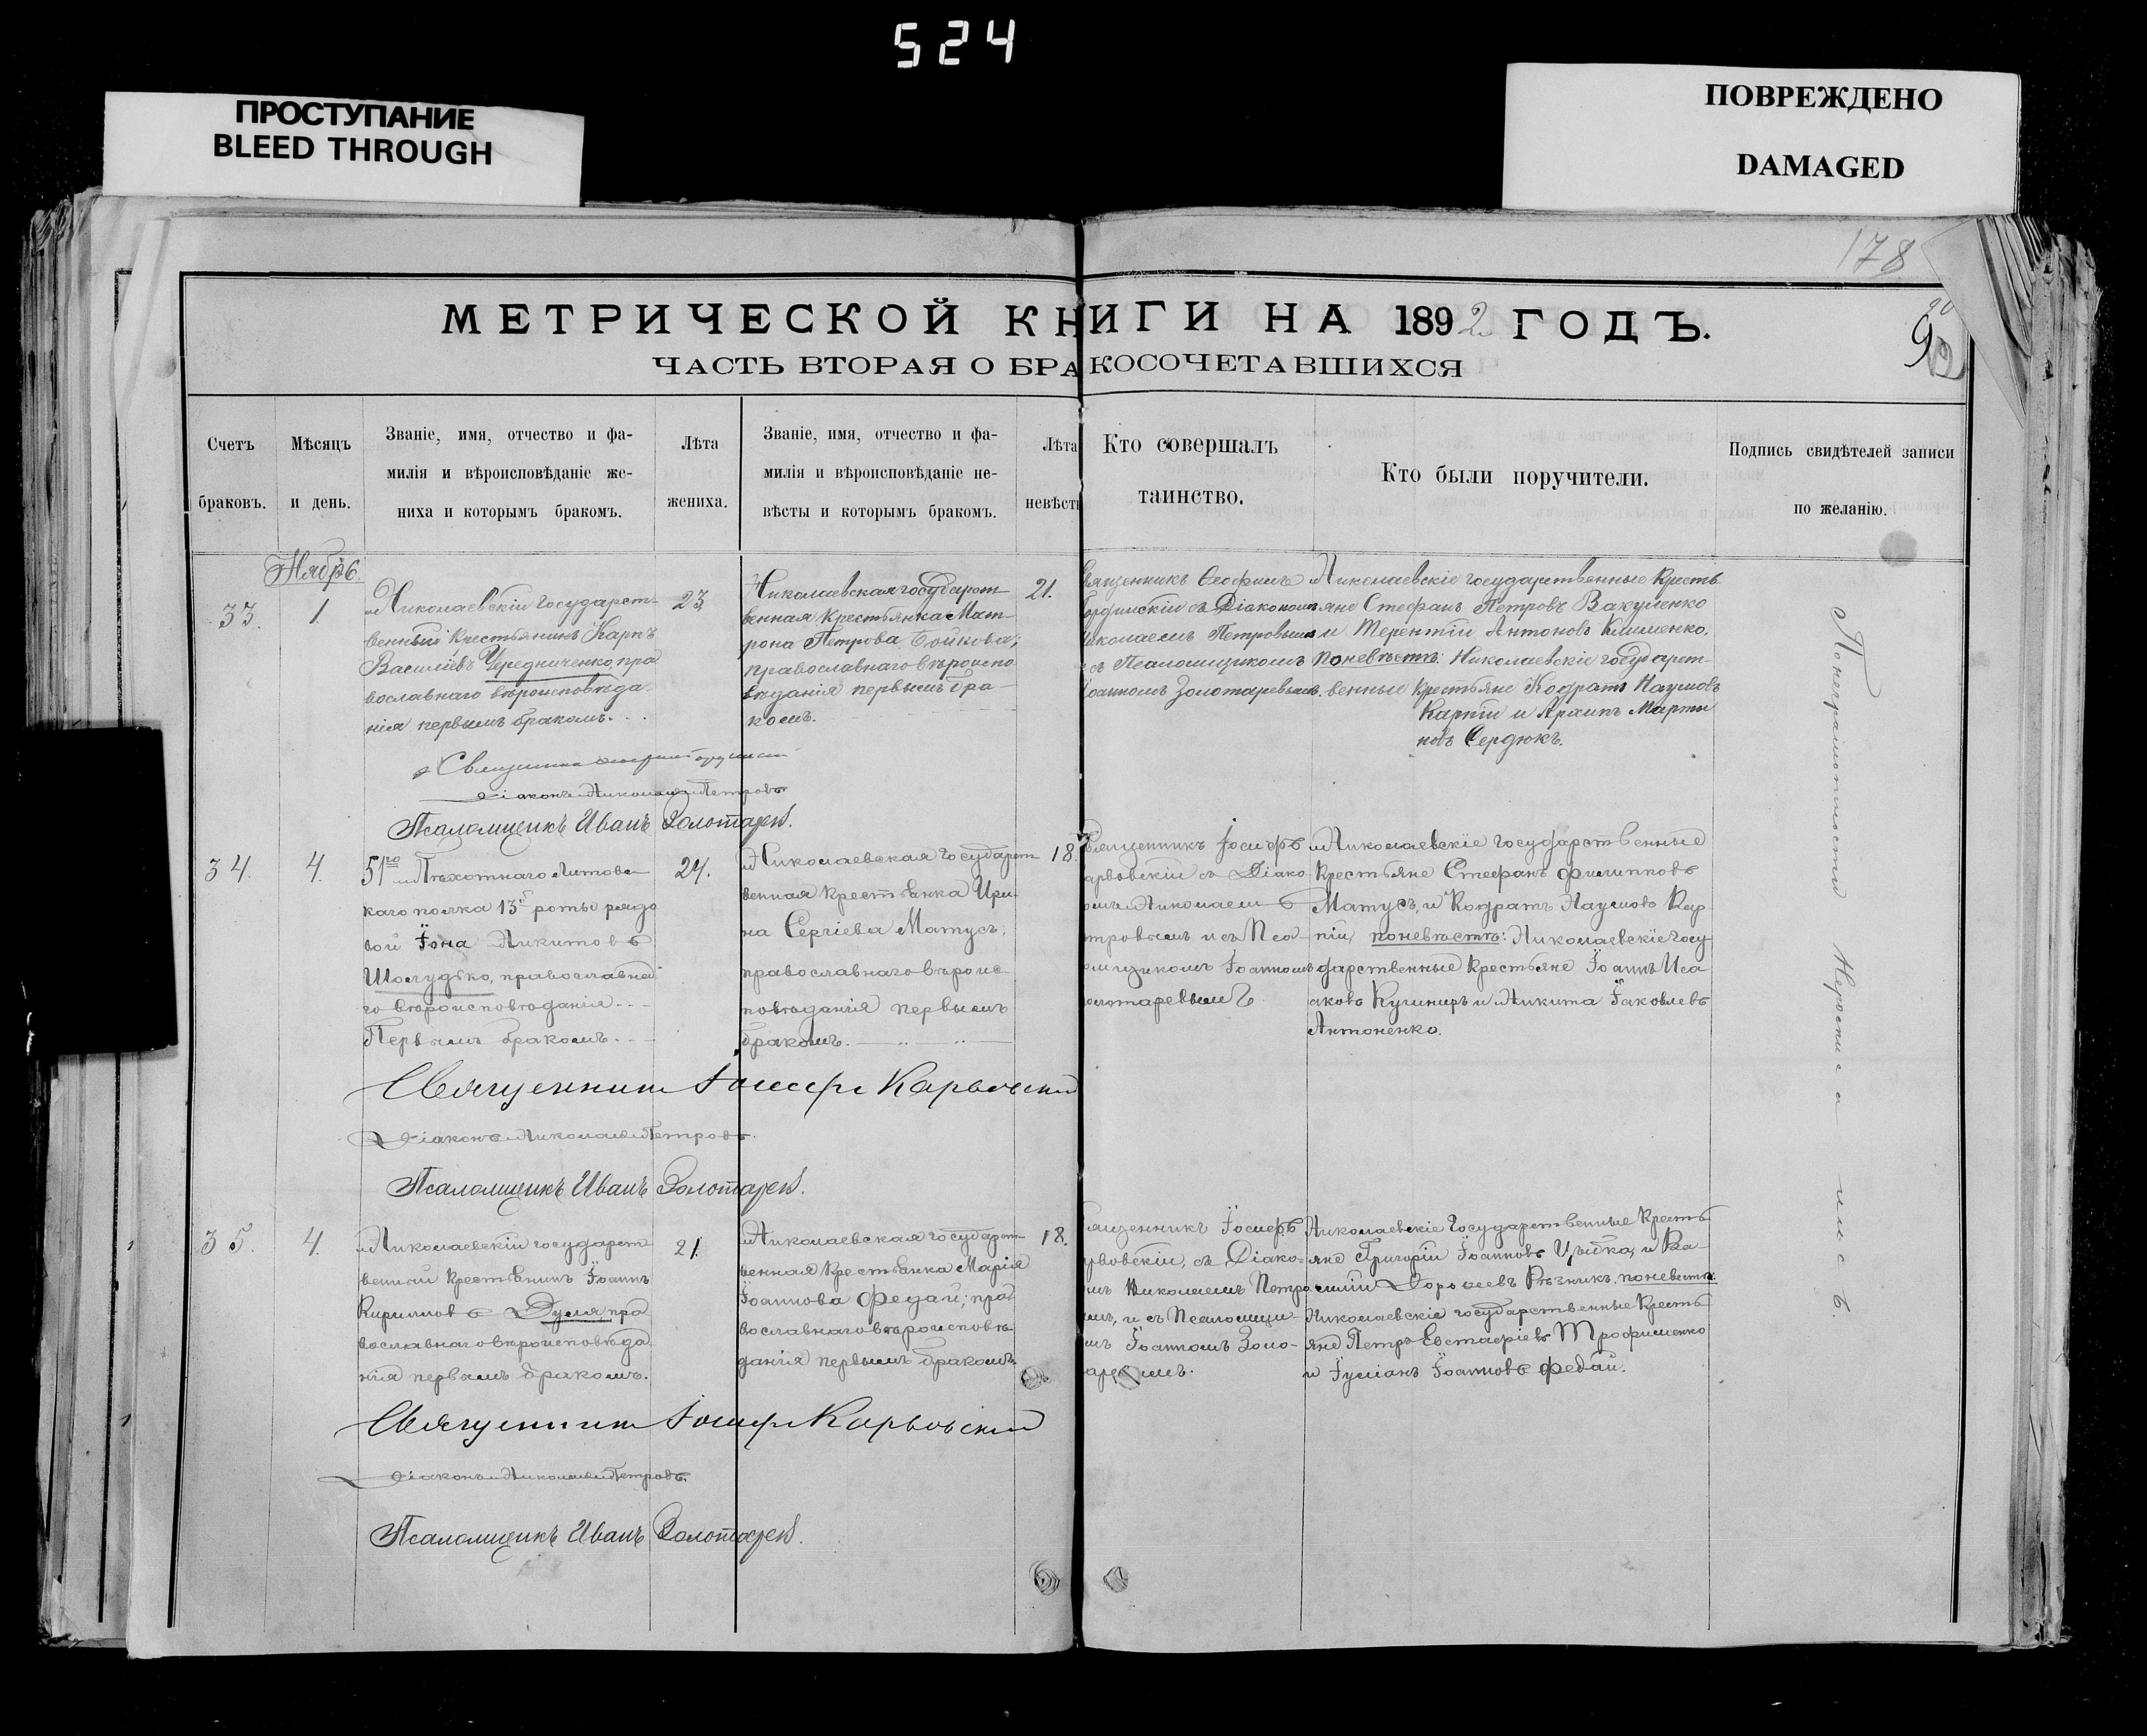 524
ПРОСТУПАНИЕ
BLEED THROUGH
ПОВРЕЖДЕНО
DAMAGED
178
МЕТРИЧЕСКОЙ КНИГИ НА 1892 ГОДЪ.
ЧАСТЬ ВТОРАЯ О БРАКОСОЧЕТАВШИХСЯ
Счетъ
браковъ.
Мѣсяцъ
и день.
Званіе, имя, отчество и фа-
милія и вѣроисповѣданіе же-
ниха и которымъ бракомъ.
Лѣта
жениха.
Званіе, имя, отчество и фа-
милія и вѣроисповѣданіе не-
вѣсты и которымъ бракомъ.
Лѣта
невѣсты
Кто совершалъ
таинство.
Кто были поручители.
Подпись свидѣтелей записи
по желанію.
33.
1.
Николаевскій государст-
венный крестьянинъ Карпъ
Василіевъ Чередниченко, пра
вославнаго вѣроисповѣда-
нія первымъ бракомъ.
23.
Николаевская государст
венная крестьянка Мат-
рона Петрова Бойкова;
православнаго вѣроиспо
вѣданія первымъ бра-
комъ.
21.
вященникъ Ѳеофилъ
съ Діакономъ
иколаемъ Петровымъ
съ Псаломщикомъ
Іоанномъ Золотаревымъ.
Николаевскіе государственные кресть
яне Стефанъ Петровъ Вакуленко
и Терентій Антоновъ Клименко.
По невѣстѣ: Николаевскіе государст-
венные крестьяне Кодратъ Наумовъ
Карпій и Архипъ Марти
новъ Сердюкъ.
Діаконъ Николай Петровъ
Псаломщикъ Иванъ Золотаревъ.
34.
4.
51го Пѣхотнаго Литовс
каго полка 13й роты рядо
вой Іона Никитовъ
Шолудько, православна
го вѣроисповѣданія
Первымъ бракомъ.
24.
Николаевская государст
венная крестьянка Ири-
на Сергіева Матусъ,
православнаго вѣроис-
повѣданія первымъ
бракомъ.
18.
вященникъ Іосифъ
арвовскій съ Діако
омъ Николаемъ
тровымъ и съ Пса-
омщикомъ Іоанномъ
олотаревымъ
Николаевскіе государственные
крестьяне Стефанъ Филипповъ
Матусъ, и Кодратъ Наумовъ Кар-
пій, по невѣстѣ: Николаевскіе госу
дарственные крестьяне Іоаннъ Иса
аковъ Кушниръ и Никита Іаковлевъ
Антоненко.
Священникъ Іосифъ Карвовскій
Діаконъ Николай Петровъ.
Псаломщикъ Иванъ Золотаревъ.
35.
4.
Николаевскій государст
венный крестьянинъ Іоаннъ
Кирилловъ Дуля, пра
вославнаго вѣроисповѣда
нія первымъ бракомъ.
21.
Николаевская государст-
венная крестьянка Марія
Іоаннова Федай; пра
вославнаго вѣроисповѣ-
данія первымъ бракомъ.
18.
ященникъ Іосифъ
рвовскій, съ Діако-
мъ Николаемъ Петро
мъ, и съ Псаломщи-
мъ Іоанномъ Золо-
аревымъ.
Николаевскіе государственные кресть
яне Григорій Іоанновъ Цыбка, и Ва-
силій Дороѳеевъ Рѣзникъ. по невѣстѣ:
Николаевскіе государственные кресть
яне Петръ Евстафіевъ Трофименко
и Іуліанъ Іоанновъ Федай.
Священникъ Іосифъ Карвовскій
Діаконъ Николай Петровъ.
Псаломщикъ Иванъ Золотаревъ.
По неграмотности